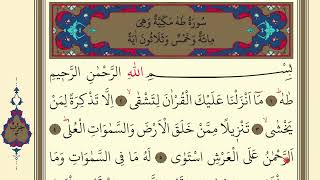 سُورَةُ طٰهٰ مَكِّيَّةٌ وَهِيَ
مِائَةٌ وَخَمْسٌ وَثَلَاثُونَ اٰيَةً
بِسْمِ اللّٰهِ الرَّحْمٰنِ الرَّحِيمِ
طٰهٰ ١ مَٓا اَنْزَلْنَا عَلَيْكَ الْقُرْاٰنَ لِتَشْقٰىۙ ٢ اِلَّا تَذْكِرَةً لِمَنْ
يَخْشٰىۙ ٣ تَنْزِيلًا مِمَّنْ خَلَقَ الْاَرْضَ وَالسَّمٰوَاتِ الْعُلٰىۜ ٤
اَلرَّحْمٰنُ عَلَى الْعَرْشِ اسْتَوٰى ٥ لَهُ مَا فِي السَّمٰوَاتِ وَمَا